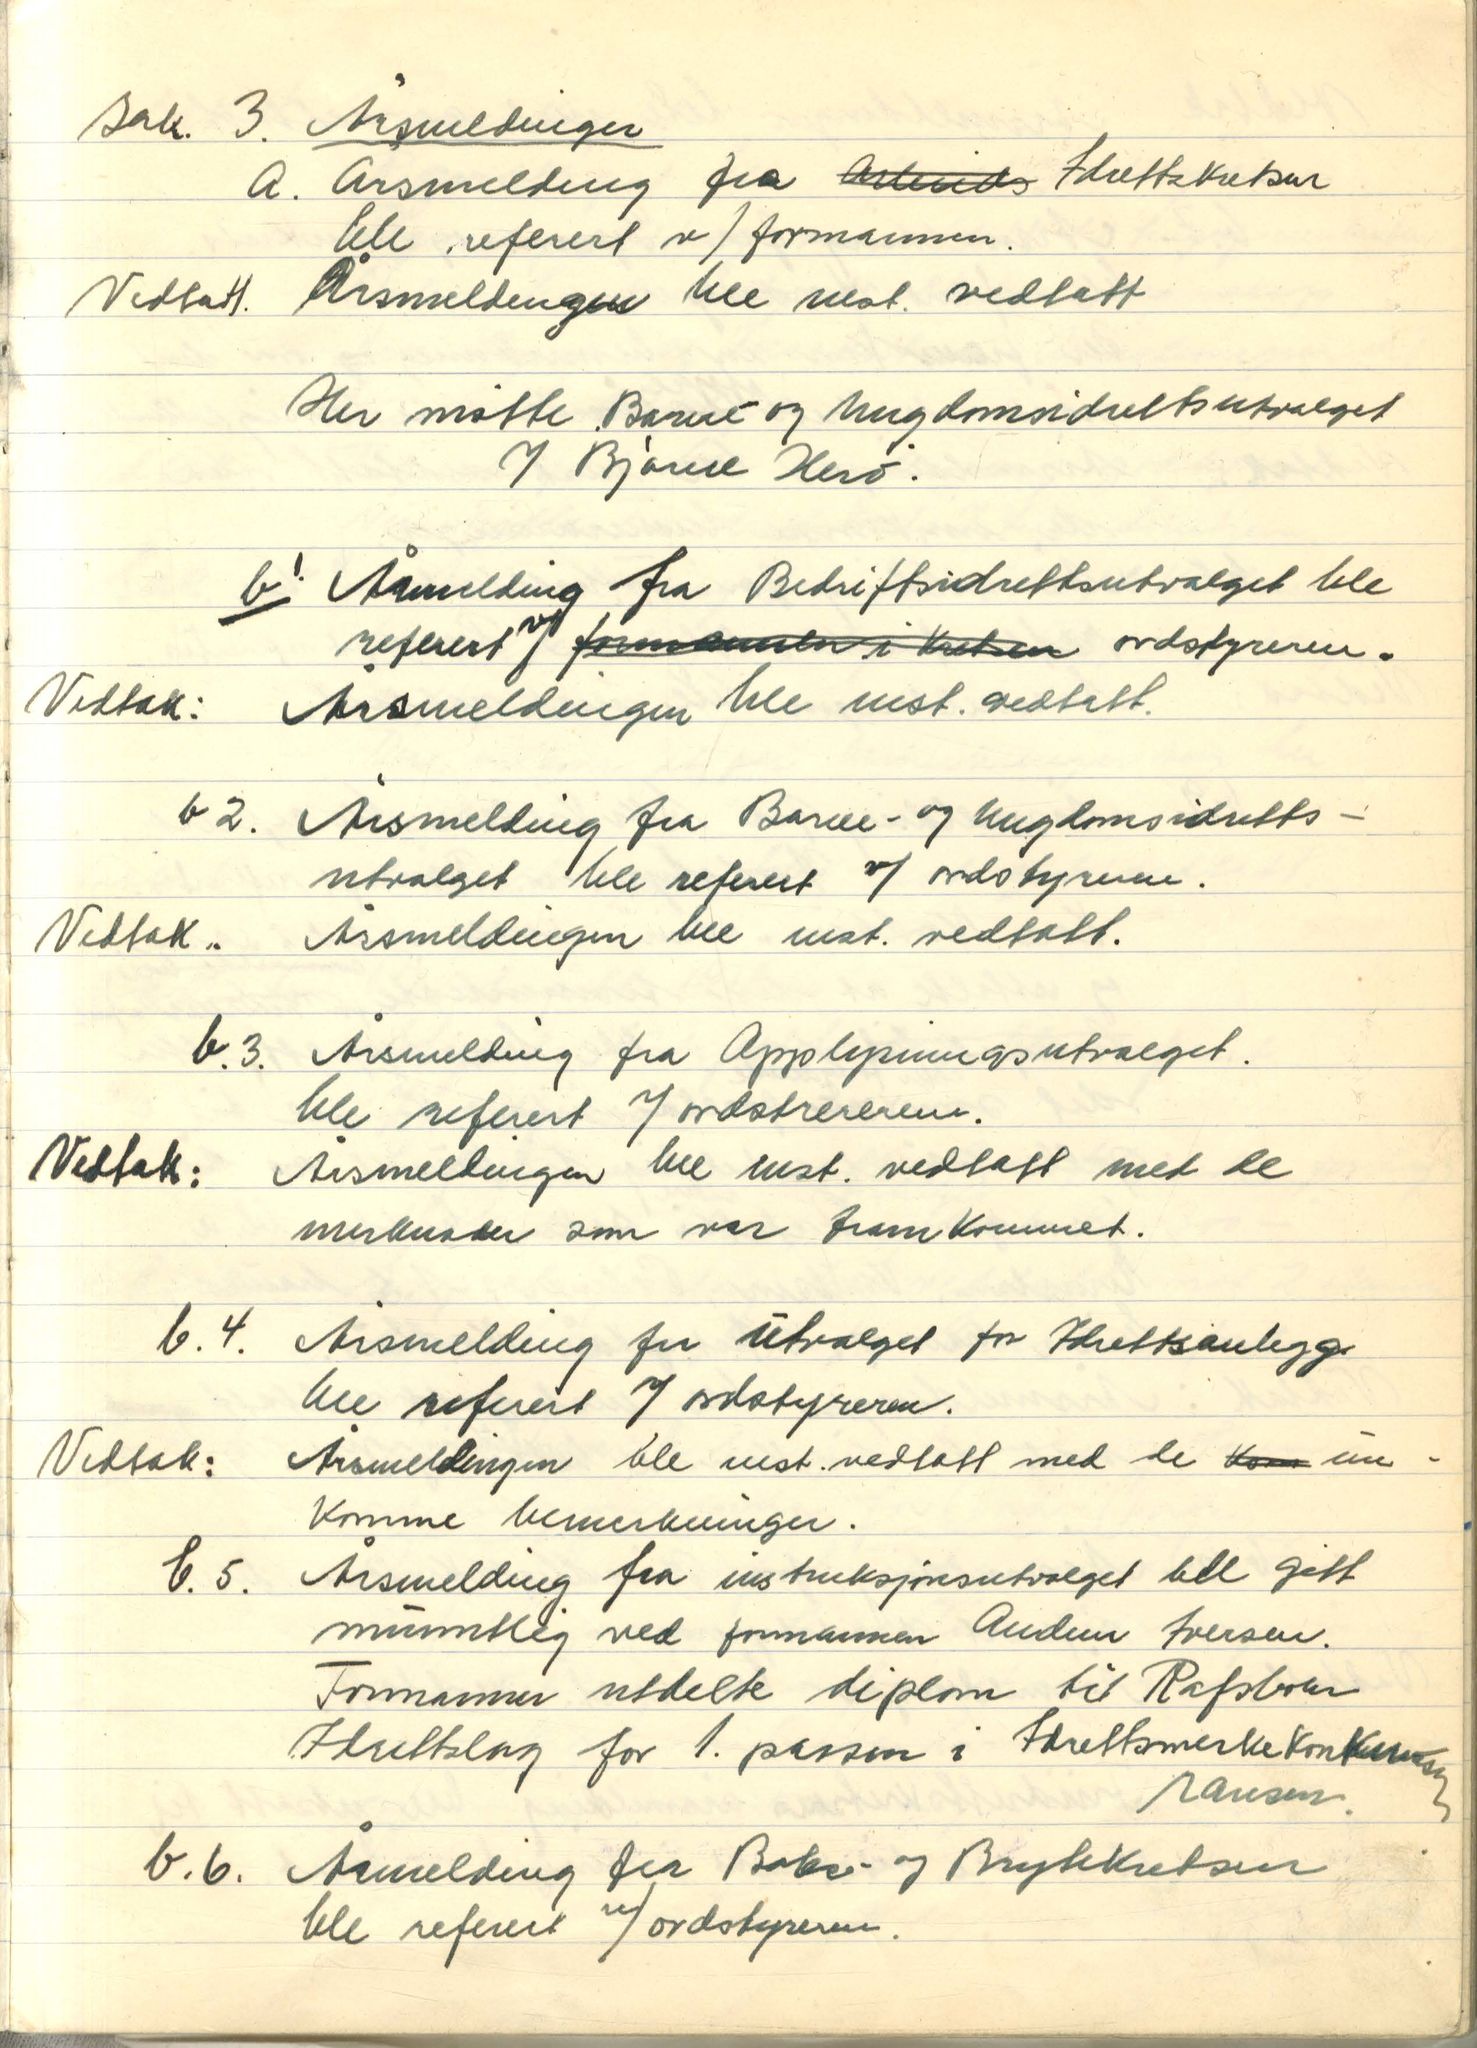 Sak. 3. Årsmeldinger
A. Årsmelding fra Arbeids Idrettskretsen
ble referert v/ formannen.
Vedtatt. Årsmeldingen ble enst. vedtatt
Her møtte Barne- og Ungdomsidrettsutvalget
v/ Bjarne
b1. Årmelding fra Bedriftsidrettsutvalget ble
referert v/ formannen i Kretsen ordstyreren.
Vedtak: Årsmeldingen ble enst. vedtatt.
b 2. Årsmelding fra Barne- og Ungdomsidretts-
utvalget ble referert v/ ordstyreren.
Vedtak.. Årsmeldingen ble enst. vedtatt.
b.3. Årsmelding fra Opplysningsutvalget.
ble referert v/ ordstrereren.
Vedtak: Årsmeldingen ble enst. vedtatt med de
merknader som var framkommet.
b.4. Årsmelding fra Utvalget for Idrettsanlegg
ble referert v/ ordstyreren.
Vedtak: Årsmeldingen ble enst. vedtatt med de Kom inn-
komne bemerkninger.
b.5. Årsmelding fra instruksjonsutvalget ble gitt
muntlig ved formannen Iversen.
Formannen utdelte diplom til Rafsbotn
Idrettslag for 1. plassen i Idrettsmerkekonkurransen.
b.6. Årmelding fra Bokse- og Brytekretsen
ble referert v/ ordstyreren.